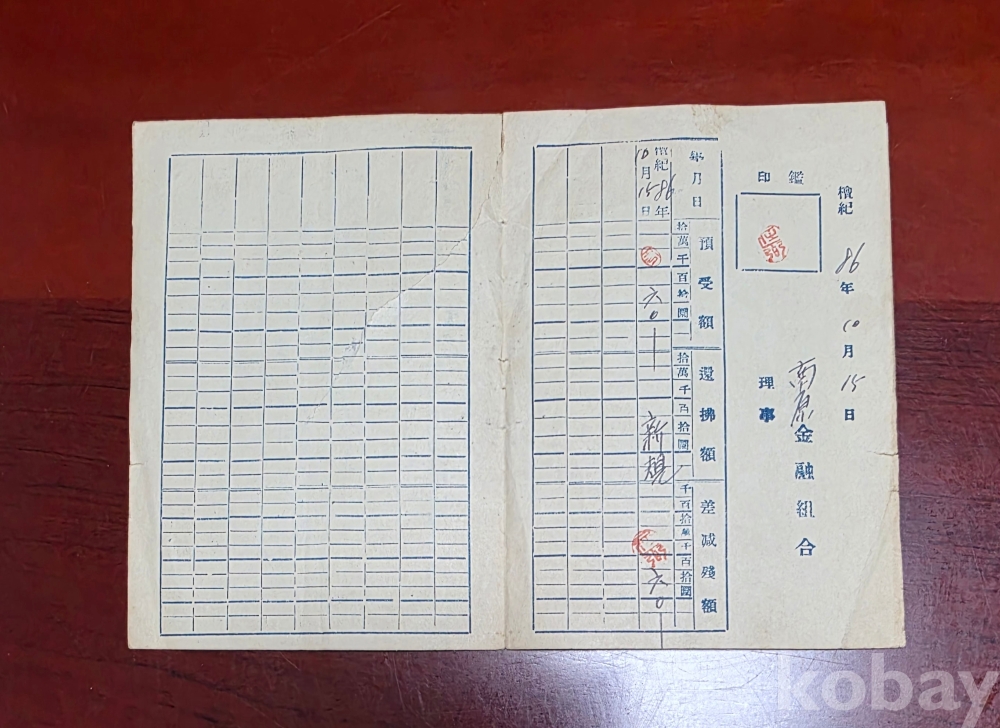 檀紀 86年 10月 15日
印鑑
南原金融組合
理事
年月日
預受額
還拂額
差減残額
拾萬千百拾圓
拾萬千百拾圓
千百拾萬千百拾圓
檀紀 86年
10月15日
六〇
新規
六〇
kobay